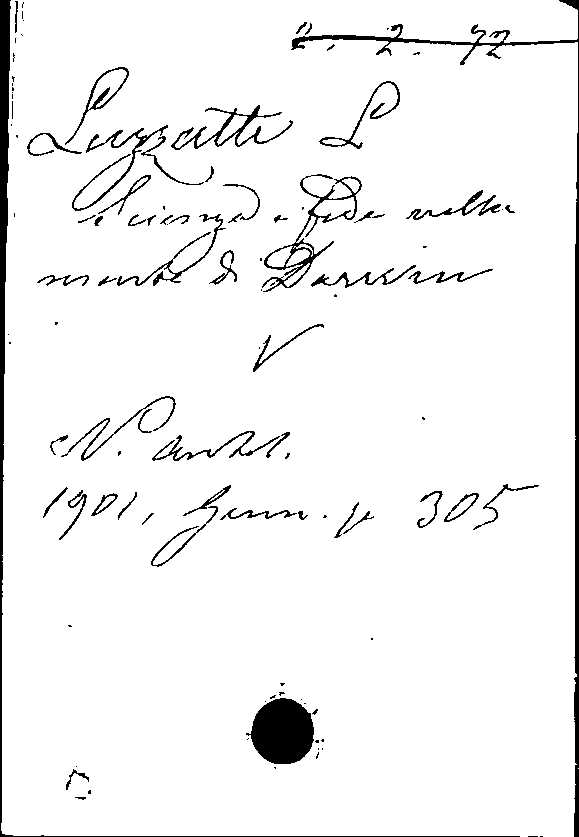 2. 2. 72
Luzzatti L
Scienza e fede nella
mente di Darwin
V
N. Antol.
1901, Genn. p 305